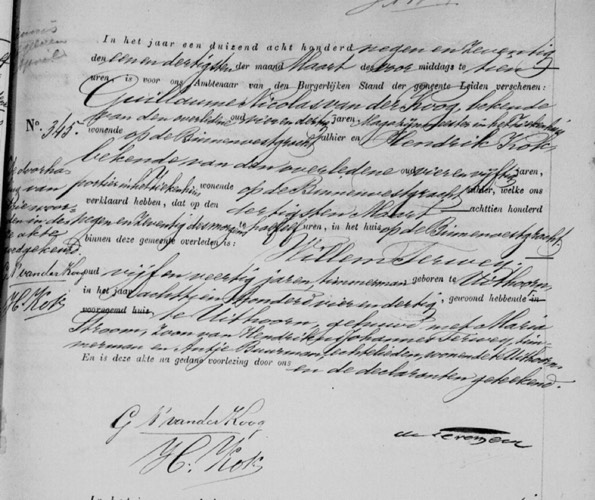 In het jaar een duizend acht honderd negen en zeventig
den een en dertigsten der maand Maart des voor middags te tien
uren, is voor ons Ambtenaar van den Burgerlijken Stand der gemeente Leiden verschenen:
Guillaume Nicolas van der Koog, bekende
No. 345. van den overledene oud vier en dertig jaren, in het
wonende op de Binnenvestgracht alhier en Hendrik Kok,
bekende van den overledene vier en vijftig jaren,
portier in het wonende op de Binnenvestgracht alhier, welke ons
verklaard hebben, dat op den dertigsten Maart achttien honderd
negen en zeventig des morgens te half elf uren, in het huis op de Binnenvestgracht
binnen deze gemeente overleden is: Willem Terweij
oud vijf en veertig jaren, timmerman geboren te Uithoorn,
in het jaar achttien honderd vier en dertig, gewoond hebbende in
voorzegd huis, te Uithoorn, gehuwd met Maria
Stroom, zoon van Hendrik Johannes Terweij, tim-
merman en Antje Buurman, echtelieden, wonende te Uithoorn.
En is deze akte na gedane voorlezing door ons en de declaranten geteekend.
G N vander Koog
H. Kok
vander Koog
H. Kok